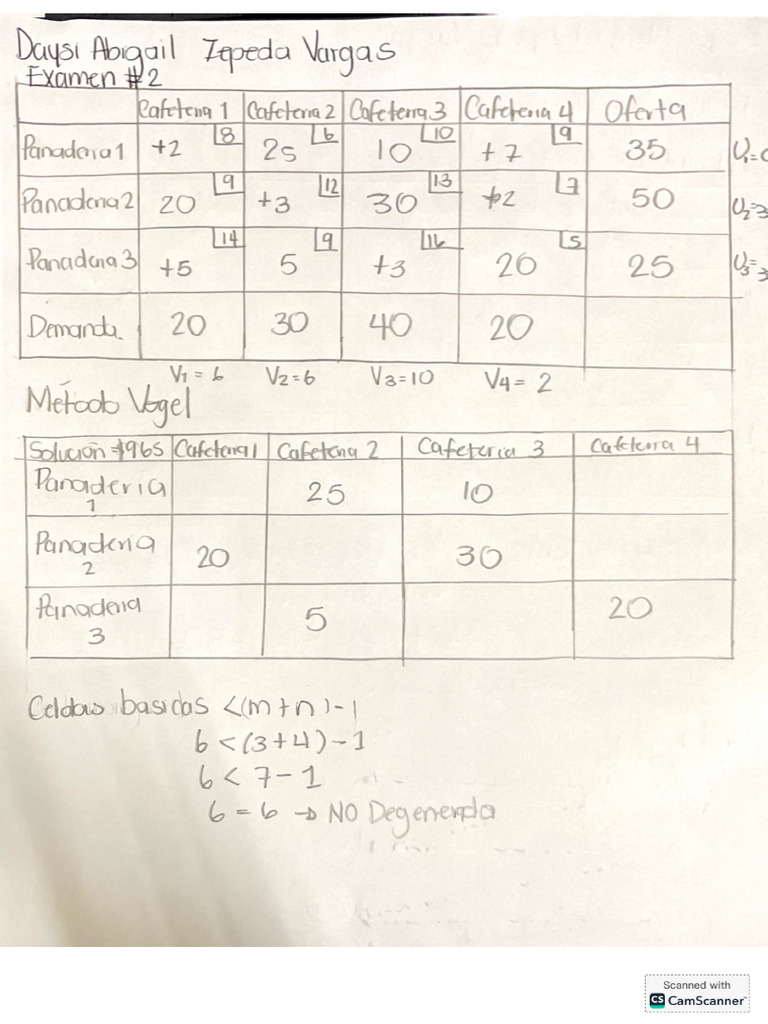 Daysi Abigail Zepeda Vargas
Examen #2
Cafeteria 1 Cafeteria 2 Cafeteria 3 Cafeteria 4 Oferta
Panaderia 1 +2 8 25 6 10 10 +7 9 35 U1=0
Panaderia 2 20 9 +3 12 30 13 +2 7 50 U2=3
Panaderia 3 +5 14 5 9 +3 16 20 5 25 U3=3
Demanda. 20 30 40 20
V1 = 6 V2=6 V3=10 V4= 2
Método Vogel
Solución = $965 Cafeteria 1 Cafeteria 2 Cafeteria 3 Cafeteria 4
Panaderia 1 25 10
Panaderia 2 20 30
Panaderia 3 5 20
Celdas basicas <(m+n)-1
6 <(3+4)-1
6 < 7-1
6 = 6 → NO Degenerada
Scanned with
CS CamScanner